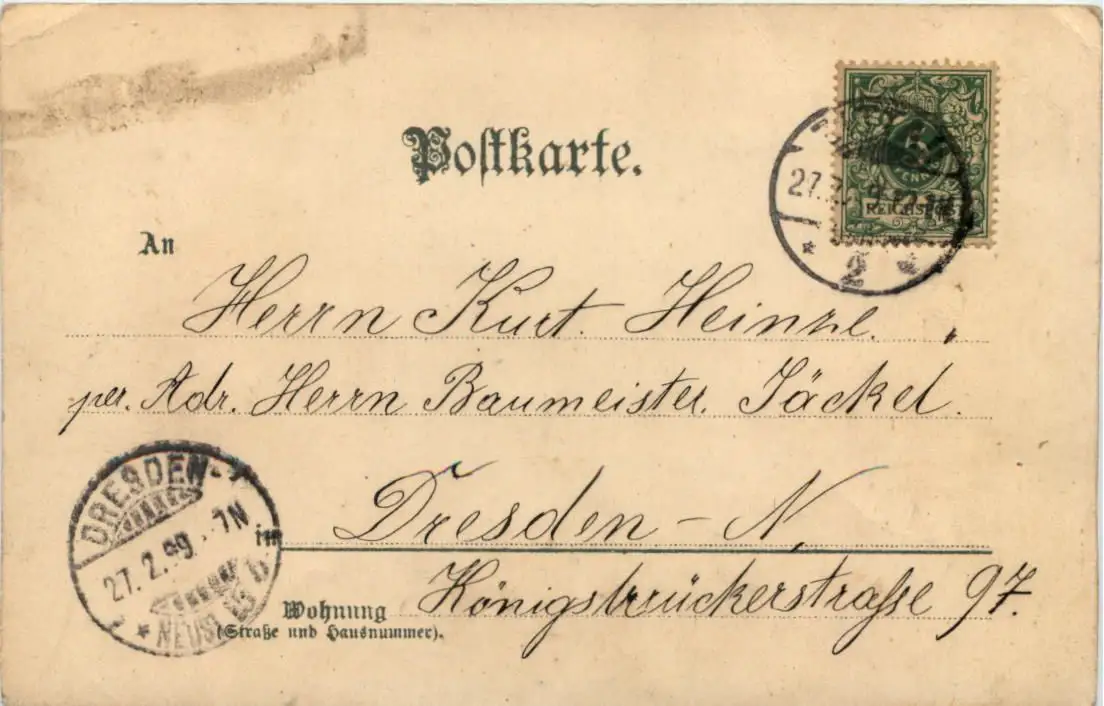 Postkarte.
5
REICHSPOST
27.2.
2
An
Herrn Kurt. Heinze.
per. Adr. Herrn Baumeister. Jäckel.
Dresden – N.
in
Königsbrückerstraße 97.
Wohnung
(Straße und Hausnummer).
DRESDEN-
27.2.99. 7N
NEUST